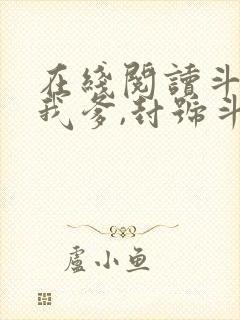 在綫閱讀斗
我爹,封號斗
盧小魚